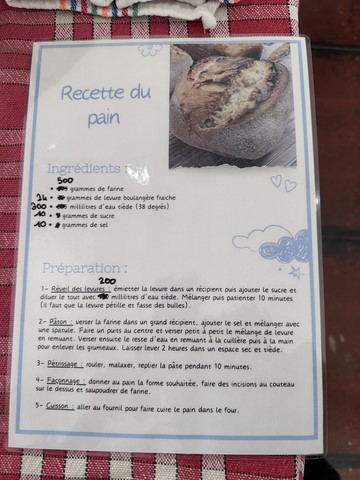 Recette du
pain
Ingrédients :
500
• grammes de farine
24 • grammes de levure boulangère fraiche
300 • millilitres d'eau tiède (38 degrés)
10 • grammes de sucre
10 • grammes de sel
Préparation :
200
1- Réveil des levures : émietter la levure dans un récipient puis ajouter le sucre et
diluer le tout avec millilitres d'eau tiède. Mélanger puis patienter 10 minutes
(il faut que la levure pétille et fasse des bulles).
2- Pâton : verser la farine dans un grand récipient, ajouter le sel et mélanger avec
une spatule. Faire un puits au centre et verser petit à petit le mélange de levure
en remuant. Verser ensuite le reste d'eau en remuant à la cuillère puis à la main
pour enlever les grumeaux. Laisser lever 2 heures dans un espace sec et tiède.
3- Pétrissage : rouler, malaxer, replier la pâte pendant 10 minutes.
4- Façonnage : donner au pain la forme souhaitée, faire des incisions au couteau
sur le dessus et saupoudrer de farine.
5- Cuisson : aller au fournil pour faire cuire le pain dans le four.